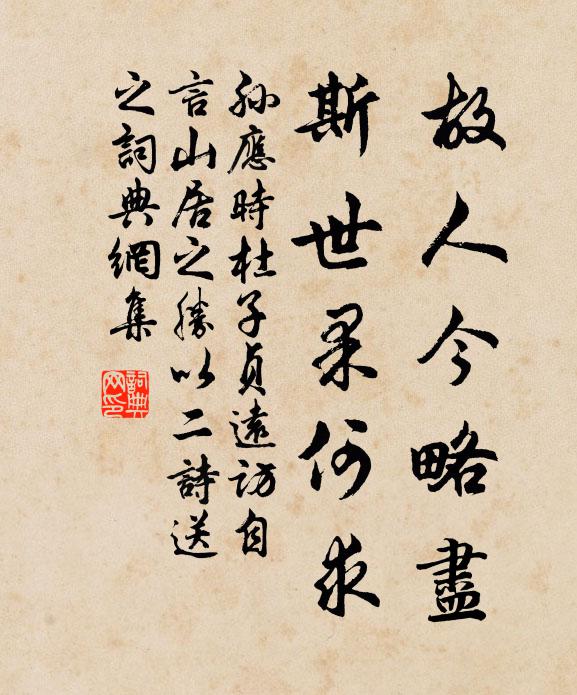 故人今略盡
斯世果何求
孫應時杜子貞遠訪自
言山居之勝以二詩送
之詞典網集
詞典
网印